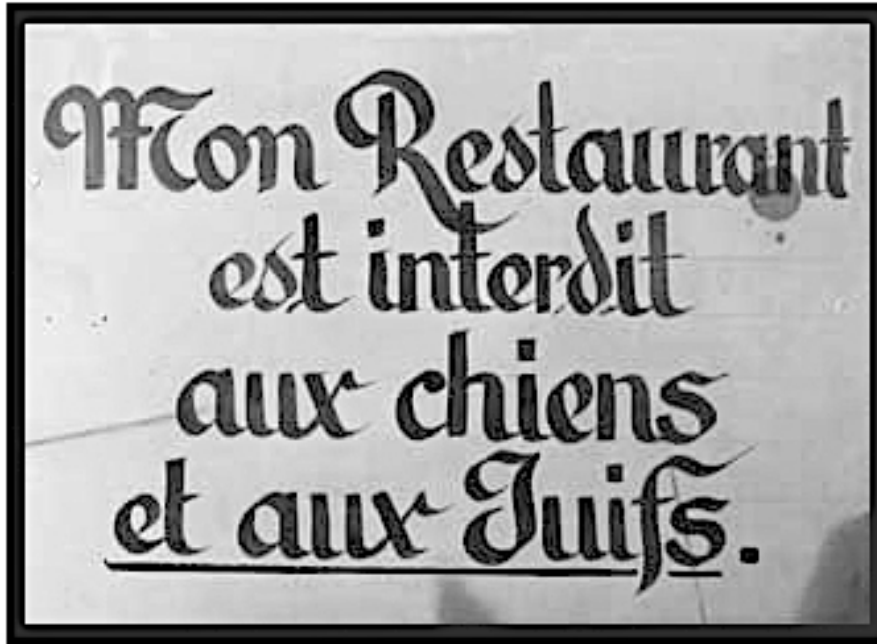 Mon Restaurant
est interdit
aux chiens
et aux Juifs.